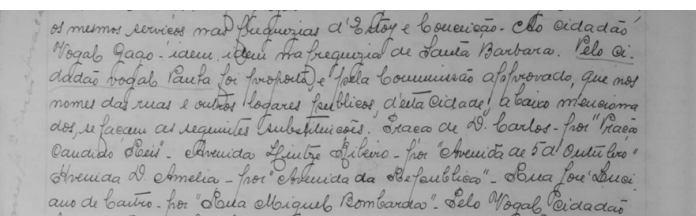 os mesmos serviços nas freguezias d'Estoy e Conceição. Ao cidadão
Vogal Gago - idem, idem na freguezia de Santa Barbara. Pelo ci-
dadão vogal Paula foi proposto, e pela Commissão approvado, que nos
nomes das ruas e outros logares publicos, d'esta cidade, abaixo menciona
dos, se façam as seguintes substituicoês. Praça de D. Carlos - por "Praça
Candido Reis" - Avenida Hintze Ribeiro - por "Avenida de 5 d'Outubro"
Avenida D. Amelia - por "Avenida da Republica" - Rua José Luci-
ano de Castro - por "Rua Miguel Bombarda". Pelo Vogal Cidadão